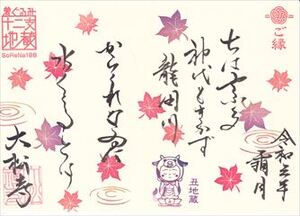 ご縁
令和三年
霜月
ちはやふる
神代もきかず
龍田川
丑地蔵
からくれなゐに
水くくるとは
着ぐるみ
十二支
地蔵
SoReNo186
大松寺